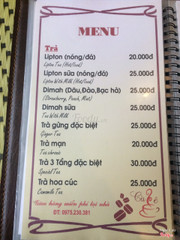 MENU
Trà
Lipton (nóng/đá) 20.000đ
Lipton Tea (Hot/Iced)
Lipton sữa (nóng/đá) 25.000đ
Lipton With Milk (Hot/Iced)
Dimah (Dâu,Đào,Bạc hà) 25.000đ
(Strawberry, Peach, Mint)
Dimah sữa 25.000đ
Tea With Milk
Trà gừng đặc biệt 25.000đ
Ginger Tea
Trà mạn 20.000đ
Trà 3 Tổng đặc biệt 30.000đ
Special Tea
Trà hoa cúc 25.000đ
Camomile Tea
Giao hàng miễn phí nội nhà
ĐT: 0975.230.381
Cafe